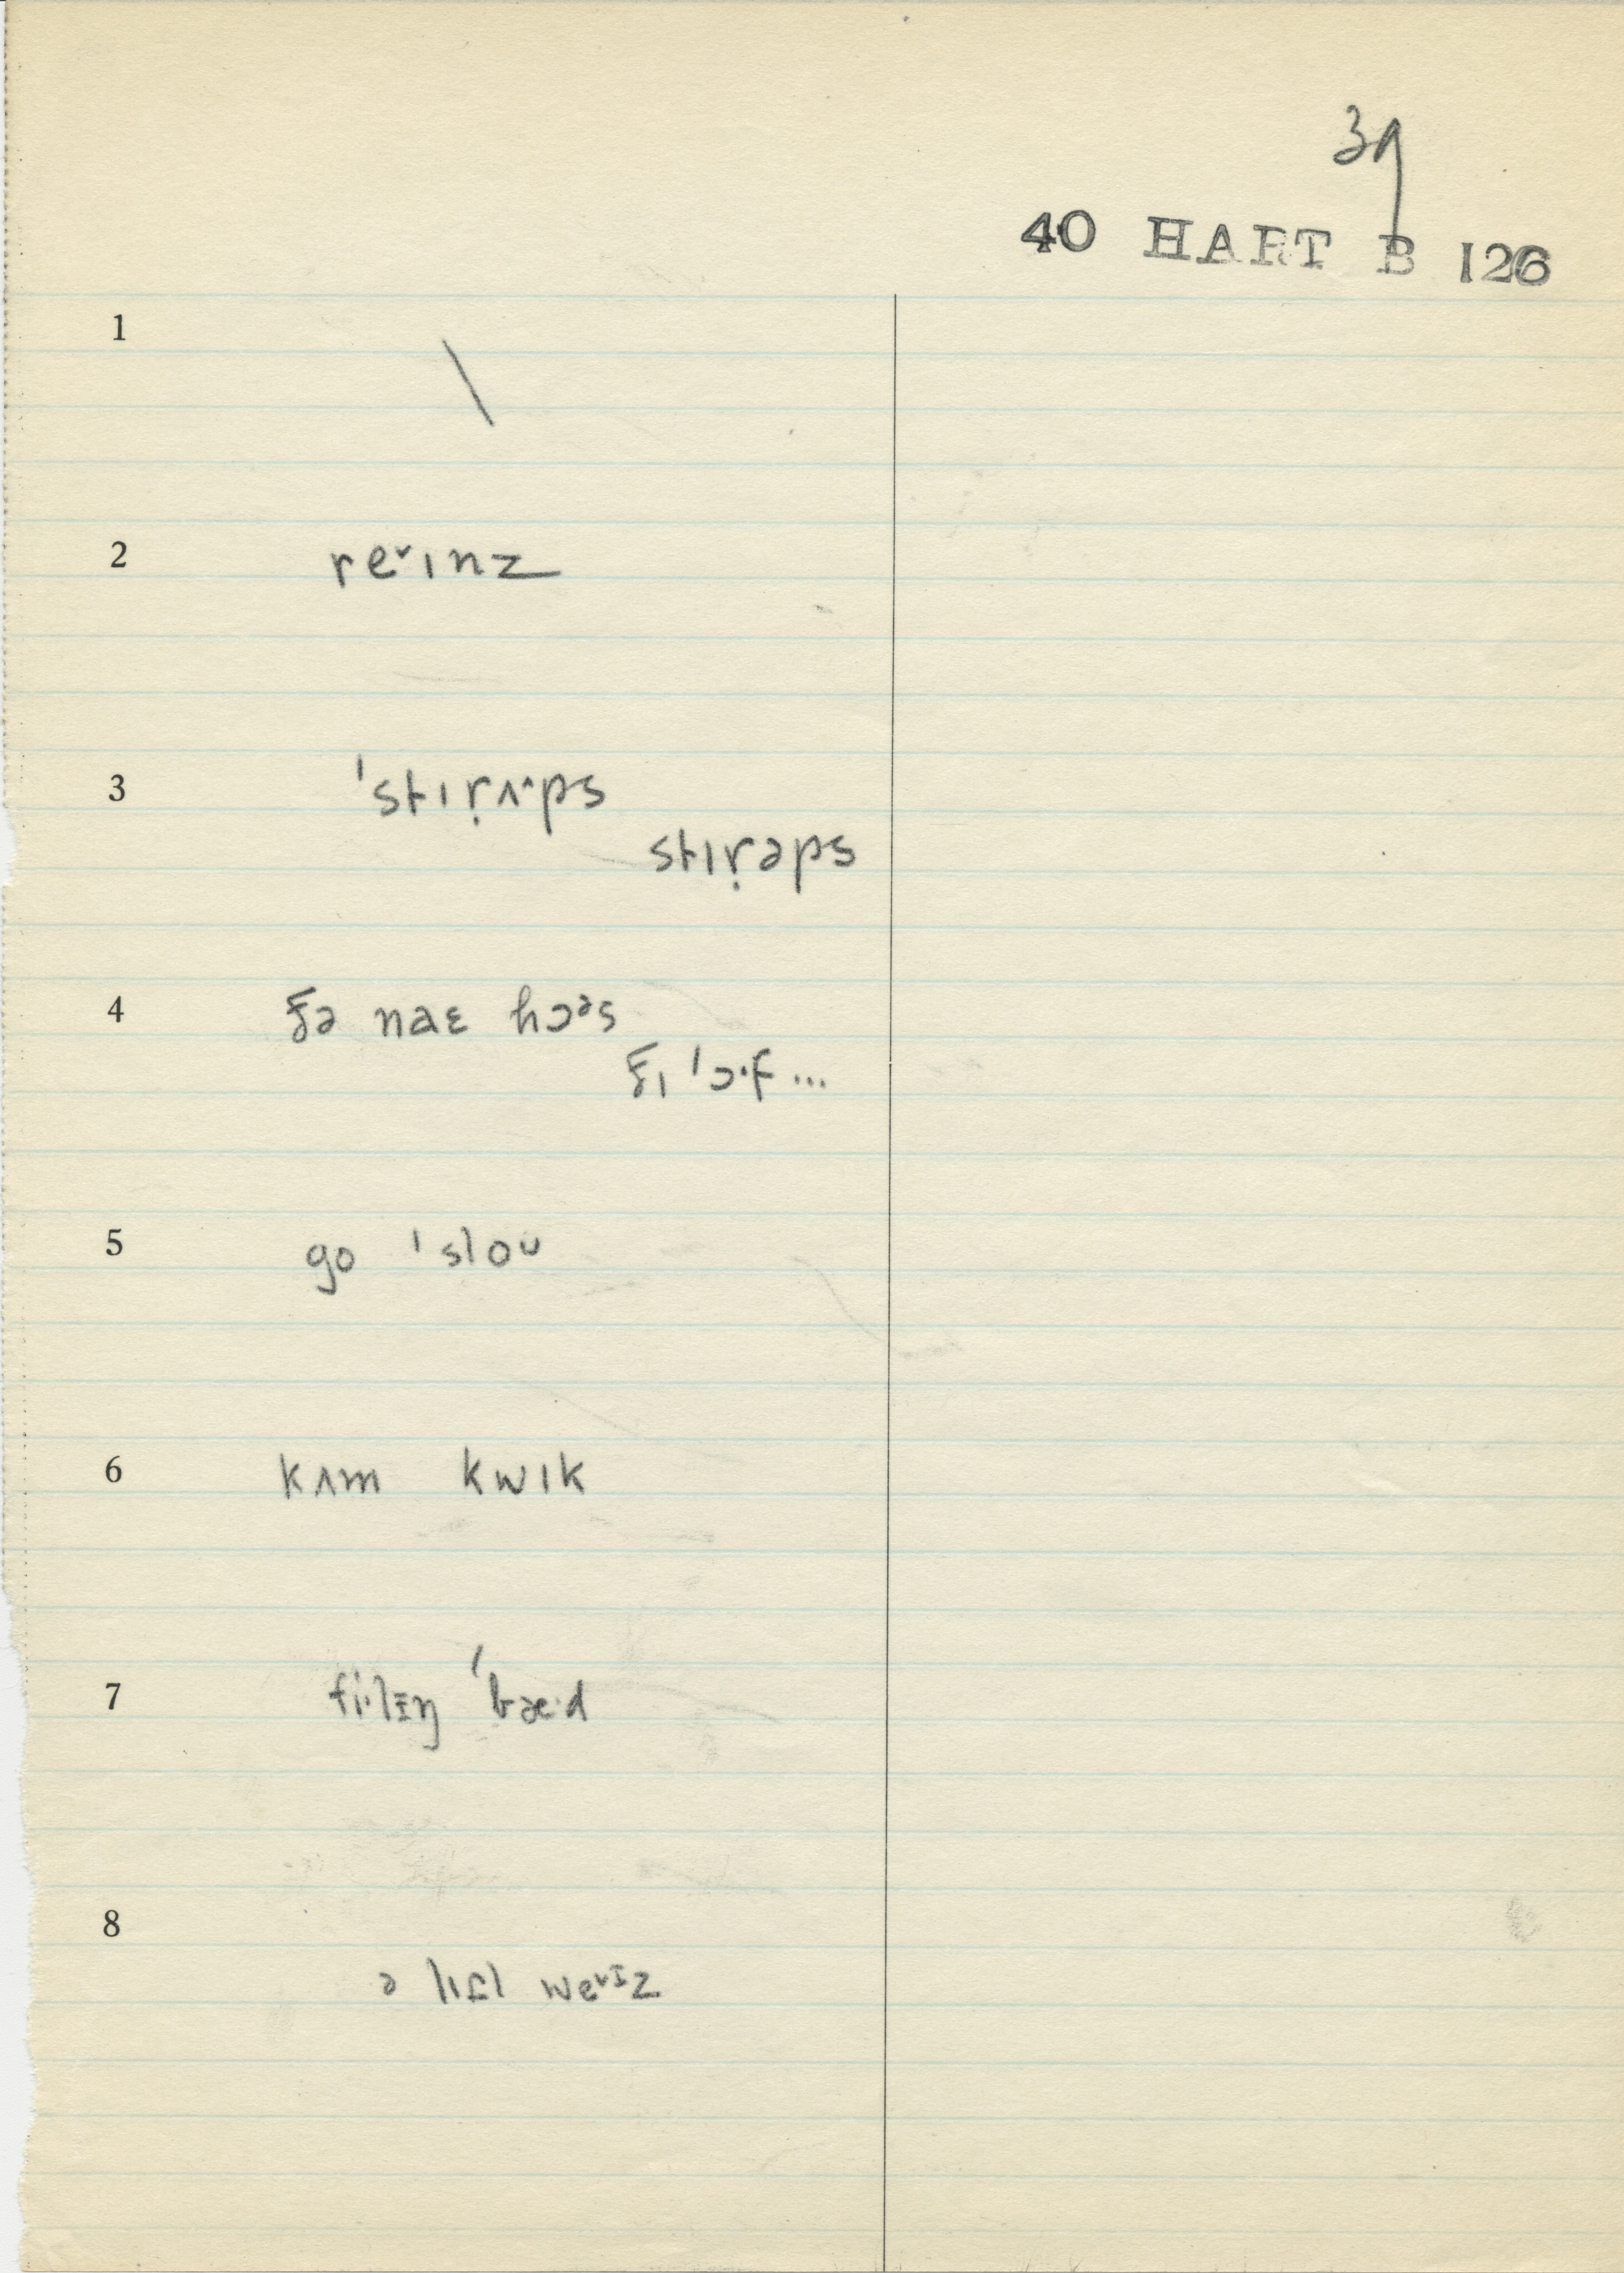 39
40 HART B 126
1 \
2 re˅ɪnz
3 ˈstɪṛʌ˄ps
stɪṛəps
4 ðə naɛ hɔᵊs
ðɪ ˈɔ·f...
5 go ˈsloᴜ
6 kʌm kwɪk
7 fi·lɪŋ ˈbæ·d
8 ə lɪt̬l we˅ɪz